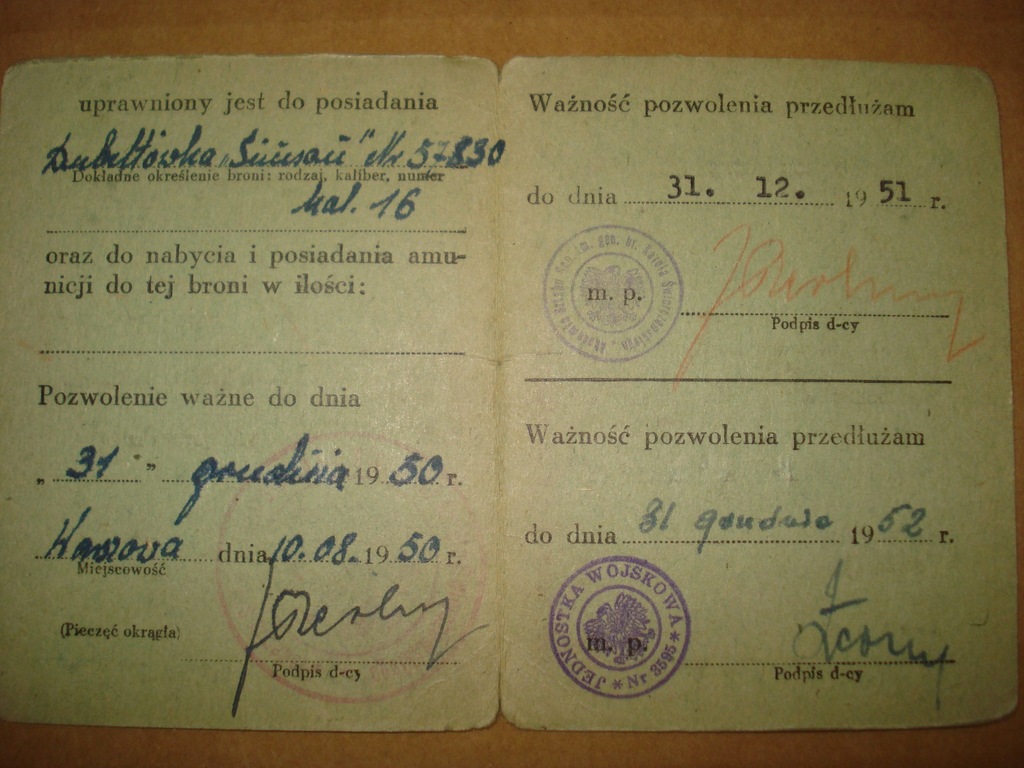 uprawniony jest do posiadania
Dubeltówka „Simson" Nr 57830
Dokładne określenie broni: rodzaj, kaliber, numer
kal. 16
oraz do nabycia i posiadania amu-
nicji do tej broni w ilości:
Pozwolenie ważne do dnia
„ 31 " grudnia 1950 r.
dnia 10.08.1950 r.
Miejscowość
(Pieczęć okrągła)
Podpis d-cy
Ważność pozwolenia przedłużam
do dnia 31. 12. 1951 r.
m. p.
Podpis d-cy
Ważność pozwolenia przedłużam
do dnia 31 grudnia 1952 r.
JEDNOSTKA WOJSKOWA
m. p.
* Nr 3595 *
Podpis d-cy